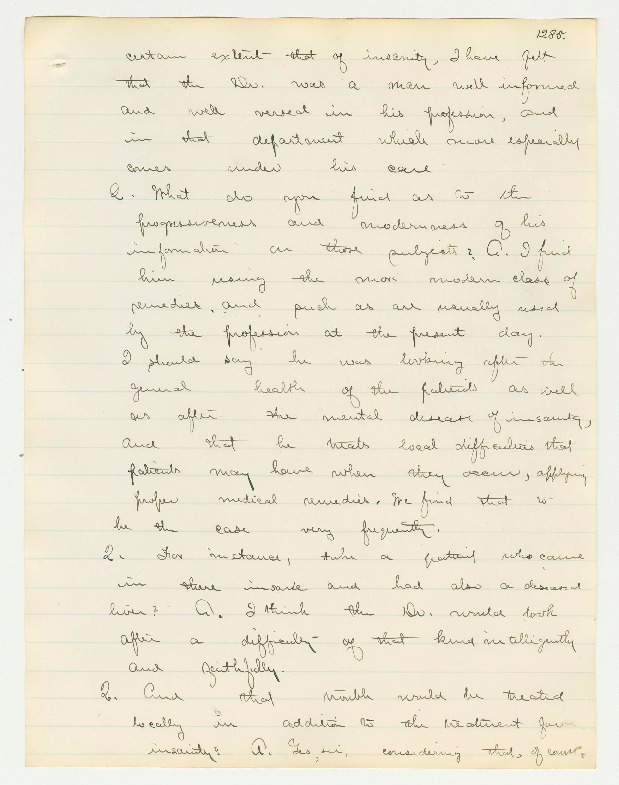 1285.
certain extent that of insanity, I have felt
that the Dr. was a man well informed
and well versed in his profession, and
in that department which more especially
comes under his care
Q. What do you find as to the
progressiveness and modernness of his
information on those subjects? A. I find
him using the more modern class of
remedies, and such as are usually used
by the profession at the present day.
I should say he was looking after the
general health of the patients as well
as after the mental disease of insanity,
and that he treats local difficulties that
patients may have when they occur, applying
proper medical remedies. We find that to
be the case very frequently.
Q. For instance, take a patient who came
in there insane and had also a diseased
liver? A. I think the Dr. would look
after a difficulty of that kind intelligently
and faithfully.
Q. And that trouble would be treated
locally in addition to the treatment for
insanity? A. Yes, sir, considering that, of course.